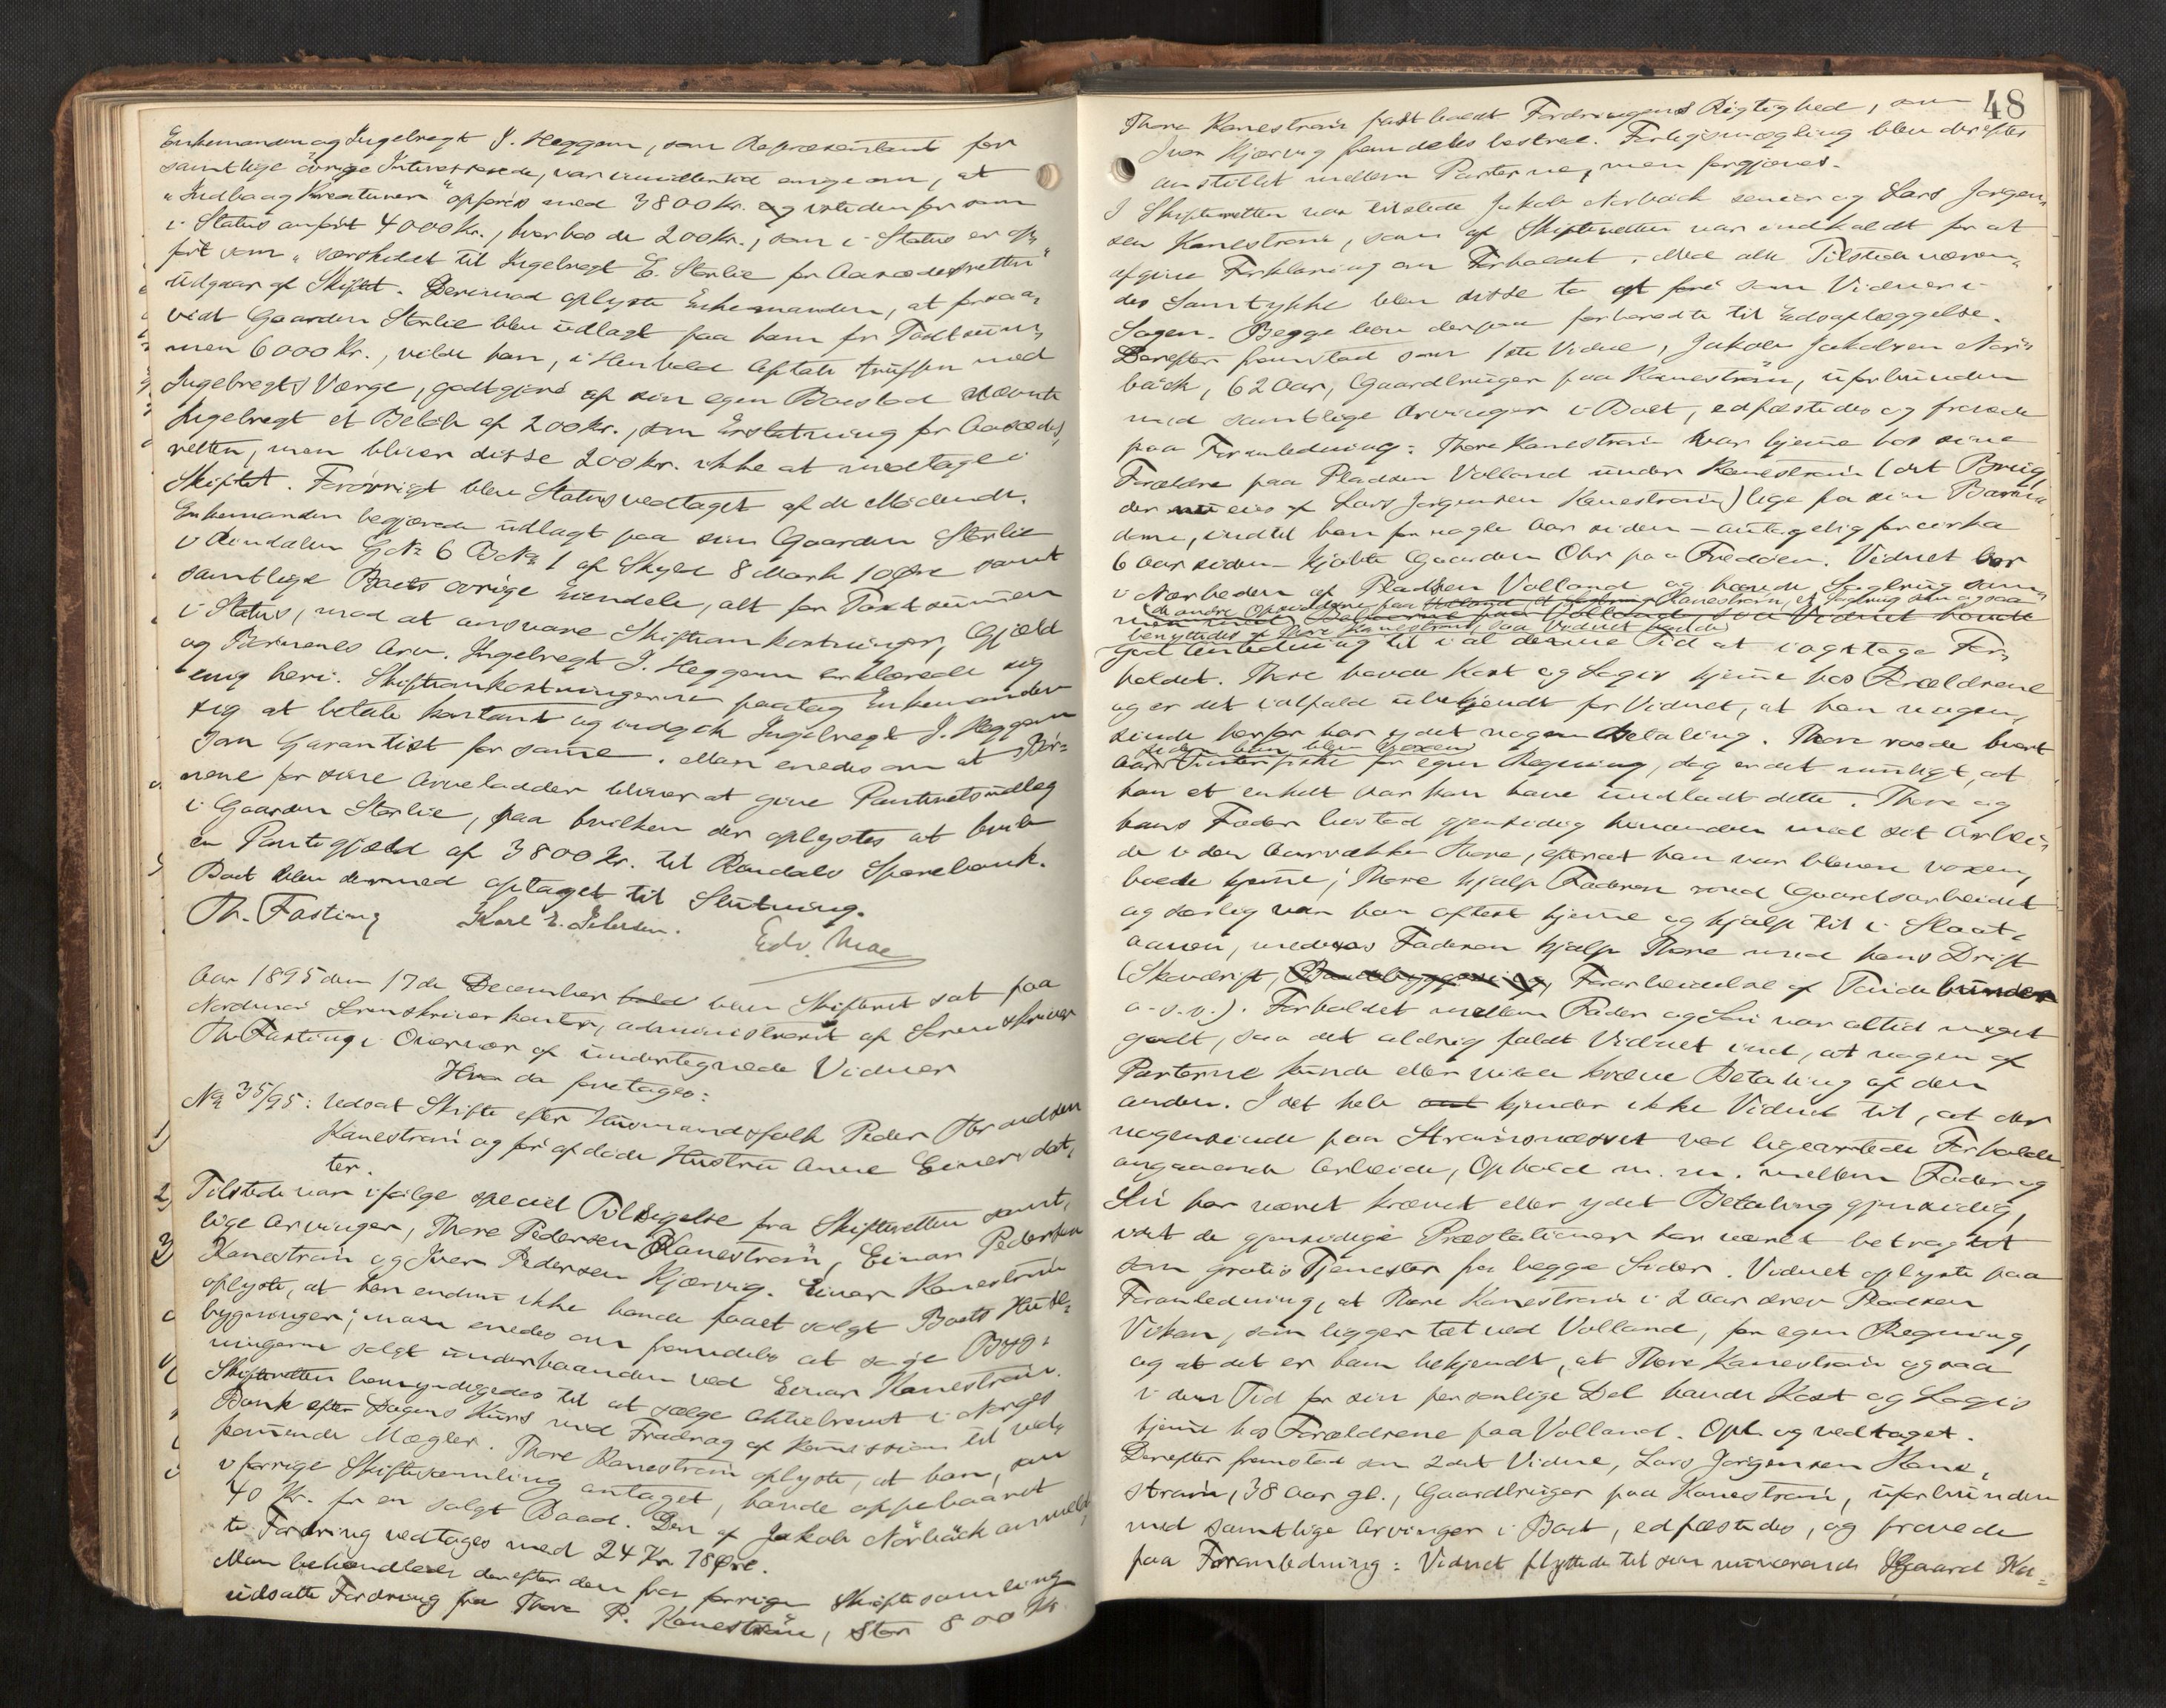 Enkemanden og Ingebregt J. Heggem, som Repræsentant for
samtlige øvrige Interesserede, var imidlertid enige om, at
"Indbo og Kreaturer" opføres med 3800 Kr. istedenfor som
i Status anført 4000 Kr., hvorhos de 200 Kr., som i Status er op-
ført som "særskildt til Ingebregt E. Storlie for Aasædesretten"
udgaar af Skiftet. Derimod oplyste Enkemanden, at forsaa-
vidt Gaarden Storlie blev udlagt paa ham for Taxtsum-
men 6000 Kr., vilde han, i Henhold Aftale truffen med
Ingebregts Værge, godtgjøre af sin egen Boeslod nævnte
Ingebregt et Beløb af 200 Kr., som Erstatning for Aasædes-
retten, men bliver disse 200 Kr. ikke at medtage i
Skiftet. Forøvrigt blev Status vedtaget af de Mødende.
Enkemanden begjærede udlagt paa sin Gaarden Storlie
i Rindalen GNo 6 BNo 1 af Skyld 8 Mark 10 Øre samt
samtlige Boets øvrige Eiendele, alt for Taxtsummen
i Status, mod at ansvare Skifteomkostninger, Gjæld
og Børnenes Arv. Ingebregt J. Heggem erklærede sig
enig heri. Skifteomkostningerne paatog Enkemanden
sig at betale kontant og indgik Ingebregt J. Heggem
som Garantist for samme. Man enedes om at Bør-
nene for sine Arvelodder bliver at give Panteretsudlæg
i Gaarden Storlie, paa hvilken der oplystes at hvile
en Pantegjæld af 3800 Kr. til Rindals Sparebank.
Boet blev dermed optaget til Slutning.
Th. Fasting Karl E. Petersen. Edv. Moe
Aar 1895 den 17de December hold blev Skifteret sat paa
Nordmør Sorenskriverkontor, administreret af Sorenskriver
Th. Fasting i Overvær af undertegnede Vidner
Hvor da foretages:
No 35/95: Udsat Skifte efter Husmandsfolk Peder Thoresen
Kanestrøm og før afdøde Hustru Anne Einersdat-
ter.
Tilstede var ifølge speciel Tilsigelse fra Skifteretten samt-
lige Arvinger, Thore Pedersen Kanestrøm, Einar Pedersen
Kanestrøm og Iver Pedersen Kjørvig. Einar Kanestrøm
oplyste, at han endnu ikke havde faaet solgt Boets Huse-
bygninger; man enedes om fremdeles at søge Byg-
ningerne solgt underhaanden ved Einar Kanestrøm.
Skifteretten bemyndigedes til at sælge Aktiebrevet i Norges
Bank efter Dagens Kurs med Fradrag af Kommission til ved-
kommende Mægler. Thore Kanestrøm oplyste, at han, som
i forrige Skiftesamling antaget, havde oppebaaret
40 Kr. for en solgt Baad. Den af Jakob Nørbäck anmeld-
te Fordring vedtages med 24 Kr. 78 Øre.
Man behandlede derefter den fra forrige Skiftesamling
udsatte Fordring fra Thore P. Kanestrøm, stor 800 Kr.
48
Thore Kanestrøm fastholdt Fordringens Rigtighed, som
Iver Kjørvig fremdeles bestred. Forligsmægling blev derefter
anstillet mellem Parterne, men forgjæves.
I Skifteretten var tilstede Jakob Nørbäck senior og Lars Jørgen-
sen Kanestrøm, som af Skifteretten var indkaldt for at
afgive Forklaring om Forholdet. Med alle Tilstedeværen-
des Samtykke blev disse to at føre som Vidner i
Sagen. Begge blev derpaa forberedte til Edsaflæggelse.
Derefter fremstod som 1ste Vidne, Jakob Jakobsen Nør-
bäck, 62 Aar, Gaardbruger paa Kanestrøm, uforbunden
med samtlige Arvinger i Boet, edfæstedes og frovede
paa Foranledning: Thore Kanestrøm var hjemme hos sine
Forældre paa Pladsen Volland under Kanestrøm (det Brug,
der nu eies af Lars Jørgensen Kanestrøm) lige fra sin Barn-
dom, indtil han for nogle Aar siden – antagelig for cirka
6 Aar siden – kjøbte Gaarden Ohr paa Fredøen. Vidnet bor
i Nærheden af Pladsen Volland og havde Sagbrug sam-
de andre Opsiddere paa Kanestrøm, et Sagbrug som ogsaa
benyttedes af Thore Kanestrøm, saa Vidnet havde
god Anledning til i al denne Tid at iagttage For-
holdet. Thore havde Kost og Logis hjemme hos Forældrene
og er det ialfald ubekjendt for Vidnet, at han nogen-
sinde herfor har ydet nogen Betaling. Thore roede hvert
siden han blev voxen
Aar Vinterfiske for egen Regning, dog er det muligt, at
han et enkelt Aar kan have undladt dette. Thore og
hans Fader bistod gjensidig hinanden med sit Arbei-
de i den Aarrække Thore, efterat han var bleven voxen,
boede hjemme; Thore hjalp Faderen med Gaardsarbeidet
og særlig var han oftest hjemme og hjalp til i Slaat-
aannen, medens Faderen hjalp Thore med hans Drift
(Skovdrift, Forarbeidelse af Tøndebunder
o.s.v.). Forholdet mellem Fader og Søn var altid meget
godt, saa det aldrig faldt Vidnet ind, at nogen af
Parterne kunde eller vilde kræve Betaling af den
anden. I det hele kjender ikke Vidnet til, at der
nogensinde paa Strømsnæsset ved ligeartede Forholde
angaaende Arbeide, Ophold m.m. mellem Fader og
Søn har været krævet eller ydet Betaling gjensidig,
idet de gjensidige Præstationer har været betragtet
som gratis Tjenester fra begge Sider. Vidnet oplyste paa
Foranledning, at Thore Kanestrøm i 2 Aar drev Pladsen
Viken, som ligger tæt ved Volland, for egen Regning,
og at det er ham bekjendt, at Thore Kanestrøm ogsaa
i den Tid for sin personlige Del havde Kost og Logis
hjemme hos Forældrene paa Volland. Opl. og vedtaget.
Derefter fremstod som 2det Vidne, Lars Jørgensen Kane-
strøm, 38 Aar gl., Gaardbruger paa Kanestrøm, uforbunden
med samtlige Arvinger i Boet, edfæstedes, og frovede
paa Foranledning: Vidnet flyttede til sin nuværende Gaard Ka-